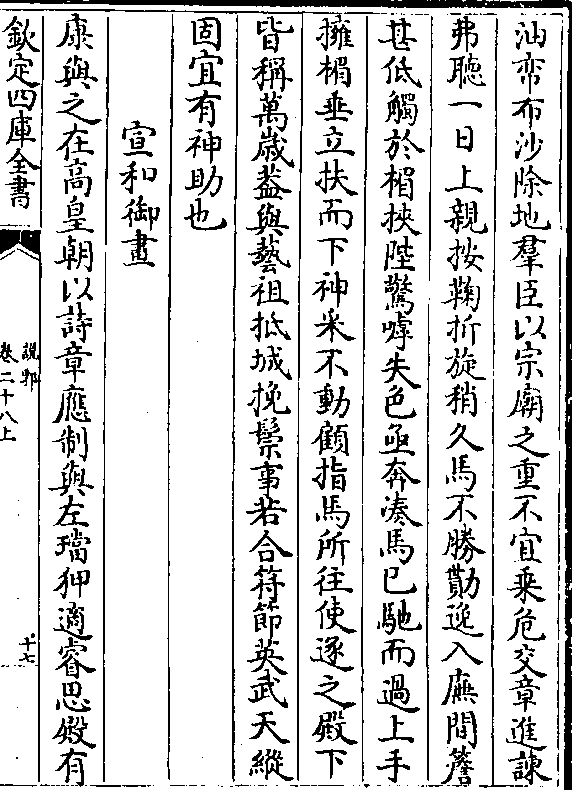 油帟布沙除地羣臣以宗廟之重不宜乗危交章進諫
弗聽一日上親按鞠折旋稍久馬不勝勩迎入廡間簷
甚低觸於楣挾陛驚嘑失色亟奔凑馬已馳而過上手
擁楣垂立扶而下神采不動顧指馬所往使逐之殿下
皆稱萬嵗葢與藝祖抵城挽鬃事若合符節英武天縱
固宜有神助也
宣和御畫
康與之在高皇朝以詩章應制與左璫狎適睿思殿有
欽定四庫全書
說郛
卷二十八上
十七